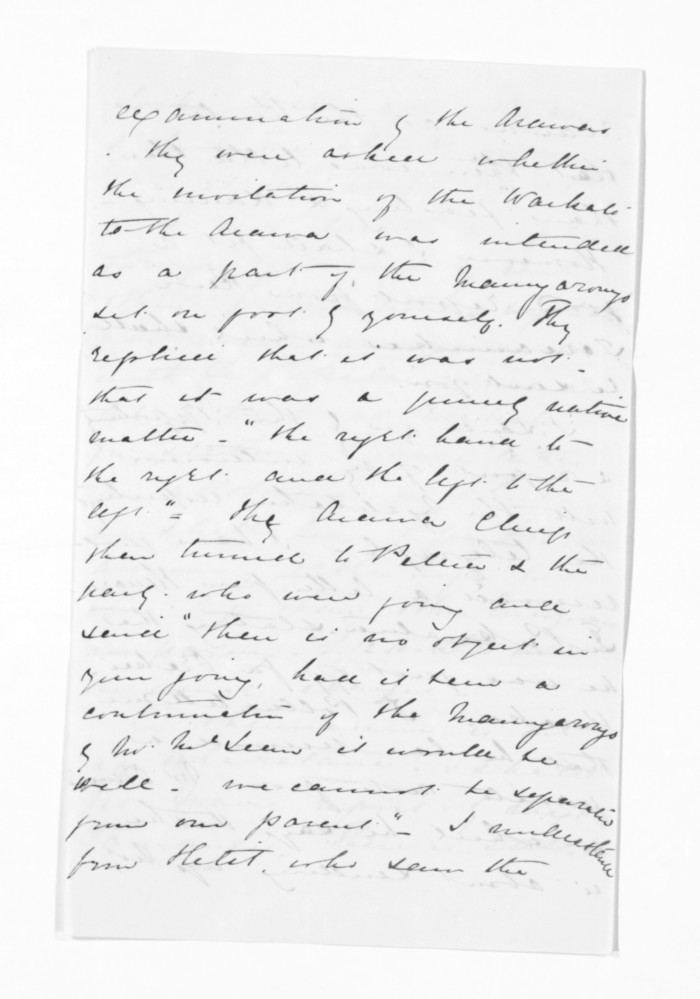 examination of the Arawas
. They were asked whether
the invitation of the Waikato
to the Arawa was intended
as a part of, the Maungarongo
set on foot by yourself. They
replied that it was not -
that it was a purely native
matter - "the right hand to
the right and the left to the
left" - The Arawa Chiefs
then turned to & the
party. who were going and
said "there is no object in
your going, had it been a
continuation of the Maungarongo
of Mr. McLean it would be
well - we cannot be separated
from our parent" - I understand
from who saw the